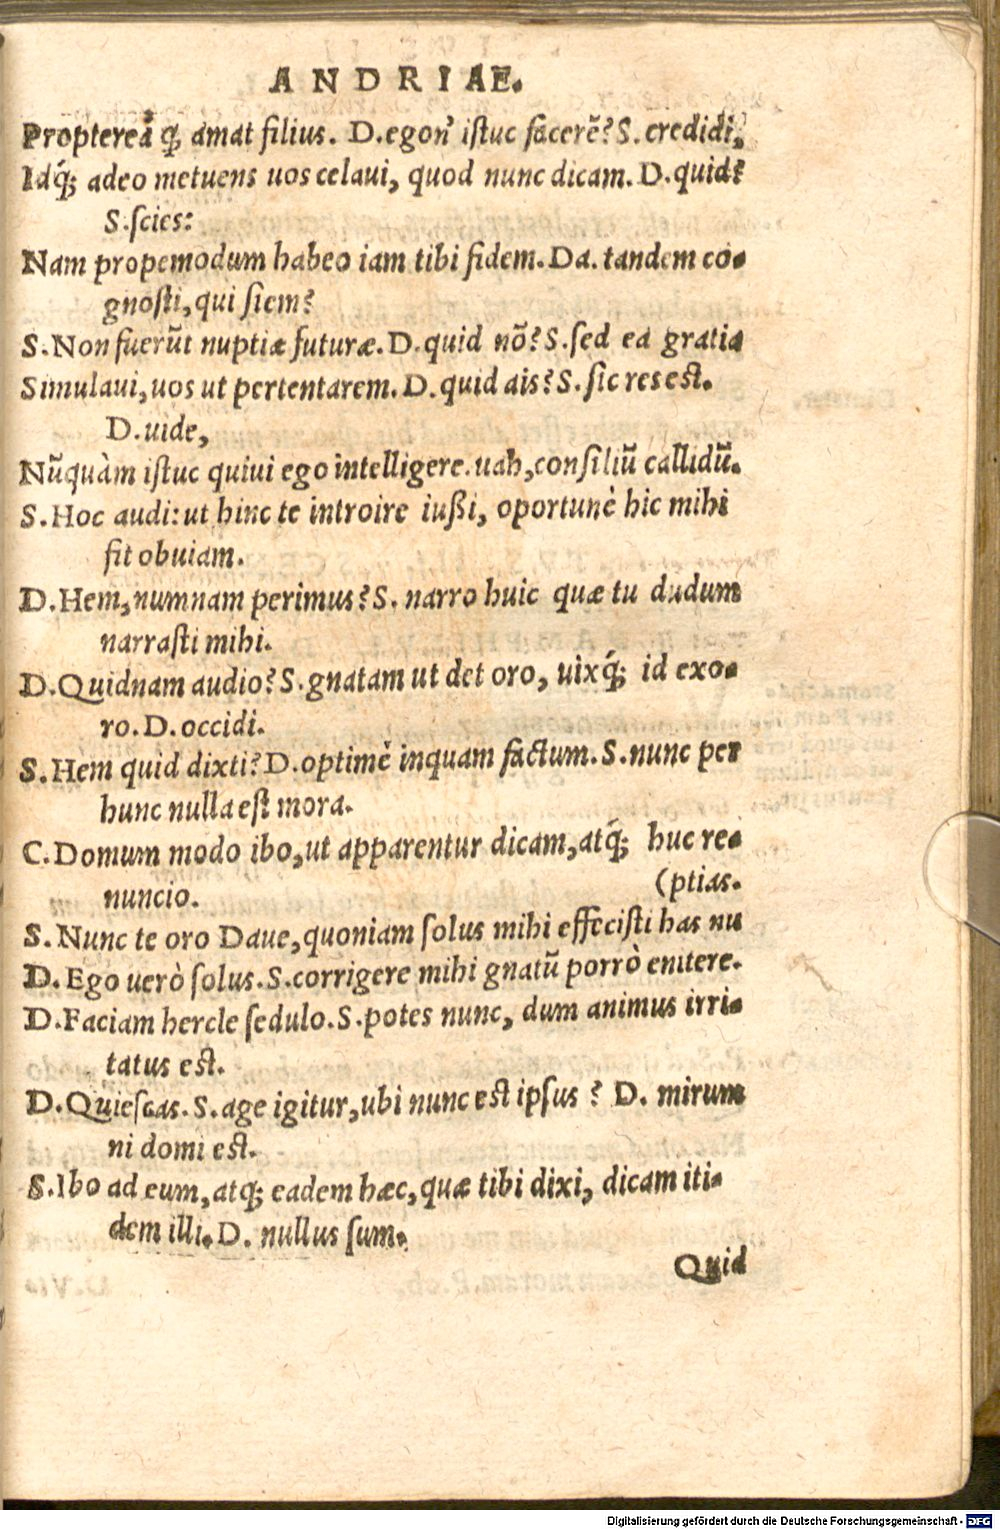 ANDRIAE.
Propterea ꝙ amat filius. D.egon' istuc facerē? S.credidi,
Idq́; adeo metuens uos celaui, quod nunc dicam. D.quid?
S.scies:
Nam propemodum habeo iam tibi fidem. Da. tandem co-
gnosti, qui siem?
S.Non fuerūt nuptiæ futuræ. D.quid nō? S.sed ea gratia
Simulaui, uos ut pertentarem. D.quid ais? S.sic res est.
D.uide,
Nūquàm istuc quiui ego intelligere. uah, consiliū callidū.
S.Hoc audi: ut hinc te introire iußi, oportunè hic mihi
fit obuiam.
D.Hem, numnam perimus? S. narro huic quæ tu dudum
narrasti mihi.
D.Quidnam audio? S.gnatam ut det oro, uixq́; id exo-
ro. D.occidi.
S.Hem quid dixti? D.optimè inquam factum. S.nunc per
hunc nulla est mora.
C.Domum modo ibo, ut apparentur dicam, atq́; huc re-
nuncio. (ptias.
S.Nunc te oro Daue, quoniam solus mihi effecisti has nu
D.Ego uerò solus. S.corrigere mihi gnatū porrò enitere.
D.Faciam hercle sedulo. S.potes nunc, dum animus irri-
tatus est.
D.Quiescas. S.age igitur, ubi nunc est ipsus? D. mirum
ni domi est.
S.Ibo ad eum, atq; eadem hæc, quæ tibi dixi, dicam iti-
dem illi. D. nullus sum.
Quid
Digitalisierung gefördert durch die Deutsche Forschungsgemeinschaft - DFG